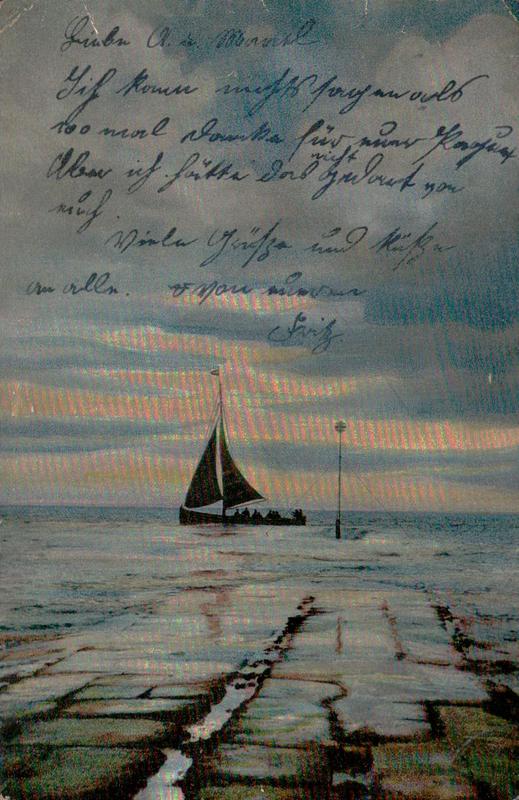 Liebe A. u. Maril
Ich kann nichts sagen als
wo mal danke für euer
Aber ich hätte das nicht gedart von
euch.
Viele Grüße und Küße
an alle. von eueren
Fritz